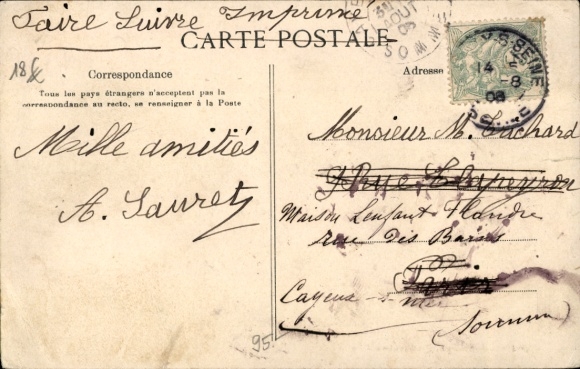 Faire Suivre Imprimé
CARTE POSTALE
18 fx
Correspondance
Tous les pays étrangers n'acceptent pas la
correspondance au recto, se renseigner à la Poste
Mille amitiés
A. Sauret
95
AOUT
06
SOMME
SEINE
14 - 8
06
Adresse
Monsieur M.
Rue
Maison Lenfant Flandre
rue des Bains
Paris
Cayeux-s-mer
Somme